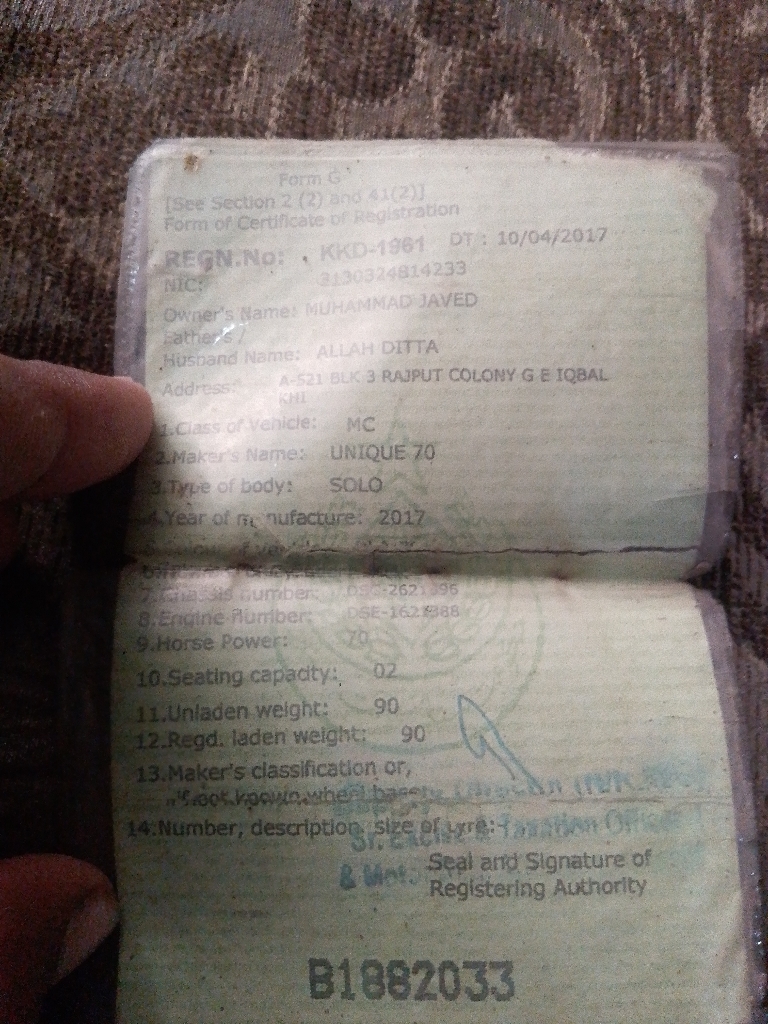 Form G
[See Section 2 (2) and 41(2)]
Form of Certificate of Registration
REGN.No: KKD-1961 DT : 10/04/2017
NIC: 3130324814233
Owner's Name: MUHAMMAD JAVED
Father's /
Husband Name: ALLAH DITTA
Address: A-521 BLK 3 RAJPUT COLONY G E IQBAL
KHI
1.Class of Vehicle: MC
2.Maker's Name: UNIQUE 70
3.Type of body: SOLO
4.Year of manufacture: 2017
7.Chassis number:
8.Engine number:
9.Horse Power: 70
10.Seating capacity: 02
11.Unladen weight: 90
12.Regd. laden weight: 90
13.Maker's classification or,
if not known wheel base:
14.Number, description, size of tyre:
Sr. Excise & Taxation Officer
Seal and Signature of
Registering Authority
B1882033